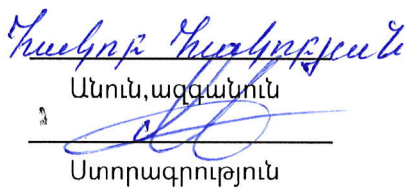 Հակոբ Հակոբյան
Անուն,ազգանուն
Ստորագրություն